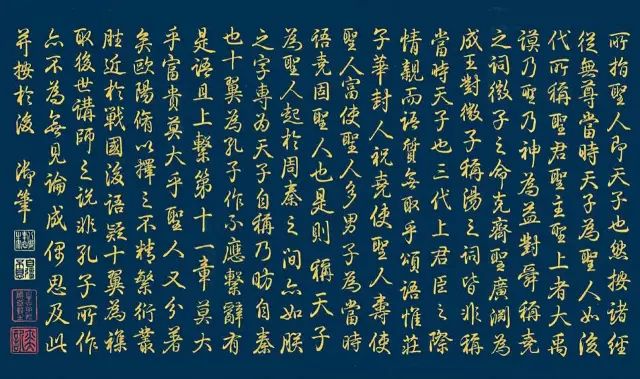 所指聖人即天子也然按諸經
從無尊當時天子為聖人如後
代所稱聖君聖主聖上者大禹
謨乃聖乃神為益對舜稱堯
之詞微子之命克齊聖廣淵為
成王對微子稱湯之詞皆非稱
當時天子也三代上君臣之際
情親而語質無取乎頌語惟莊
子華封人祝堯使聖人壽使
聖人富使聖人多男子為當時
語堯固聖人也是則稱天子
為聖人起於周秦之間亦如朕
之字專為天子自稱乃昉自秦
也十翼為孔子作不應繫辭有
是語且上繫第十一章莫大
乎富貴莫大乎聖人又分著
矣歐陽脩以擇之不精繁衍叢
脞近於戰國後語疑十翼為襍
取後世講師之說非孔子所作
亦不為無見論成偶思及此
并按於後 御筆